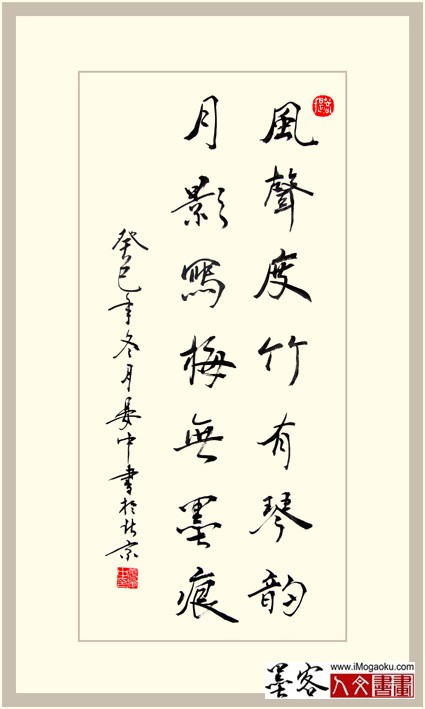 風聲度竹有琴韵
月影寫梅無墨痕
癸巳年冬月晏中書於北京
墨客
www.iMogaoku.com
人文書畫